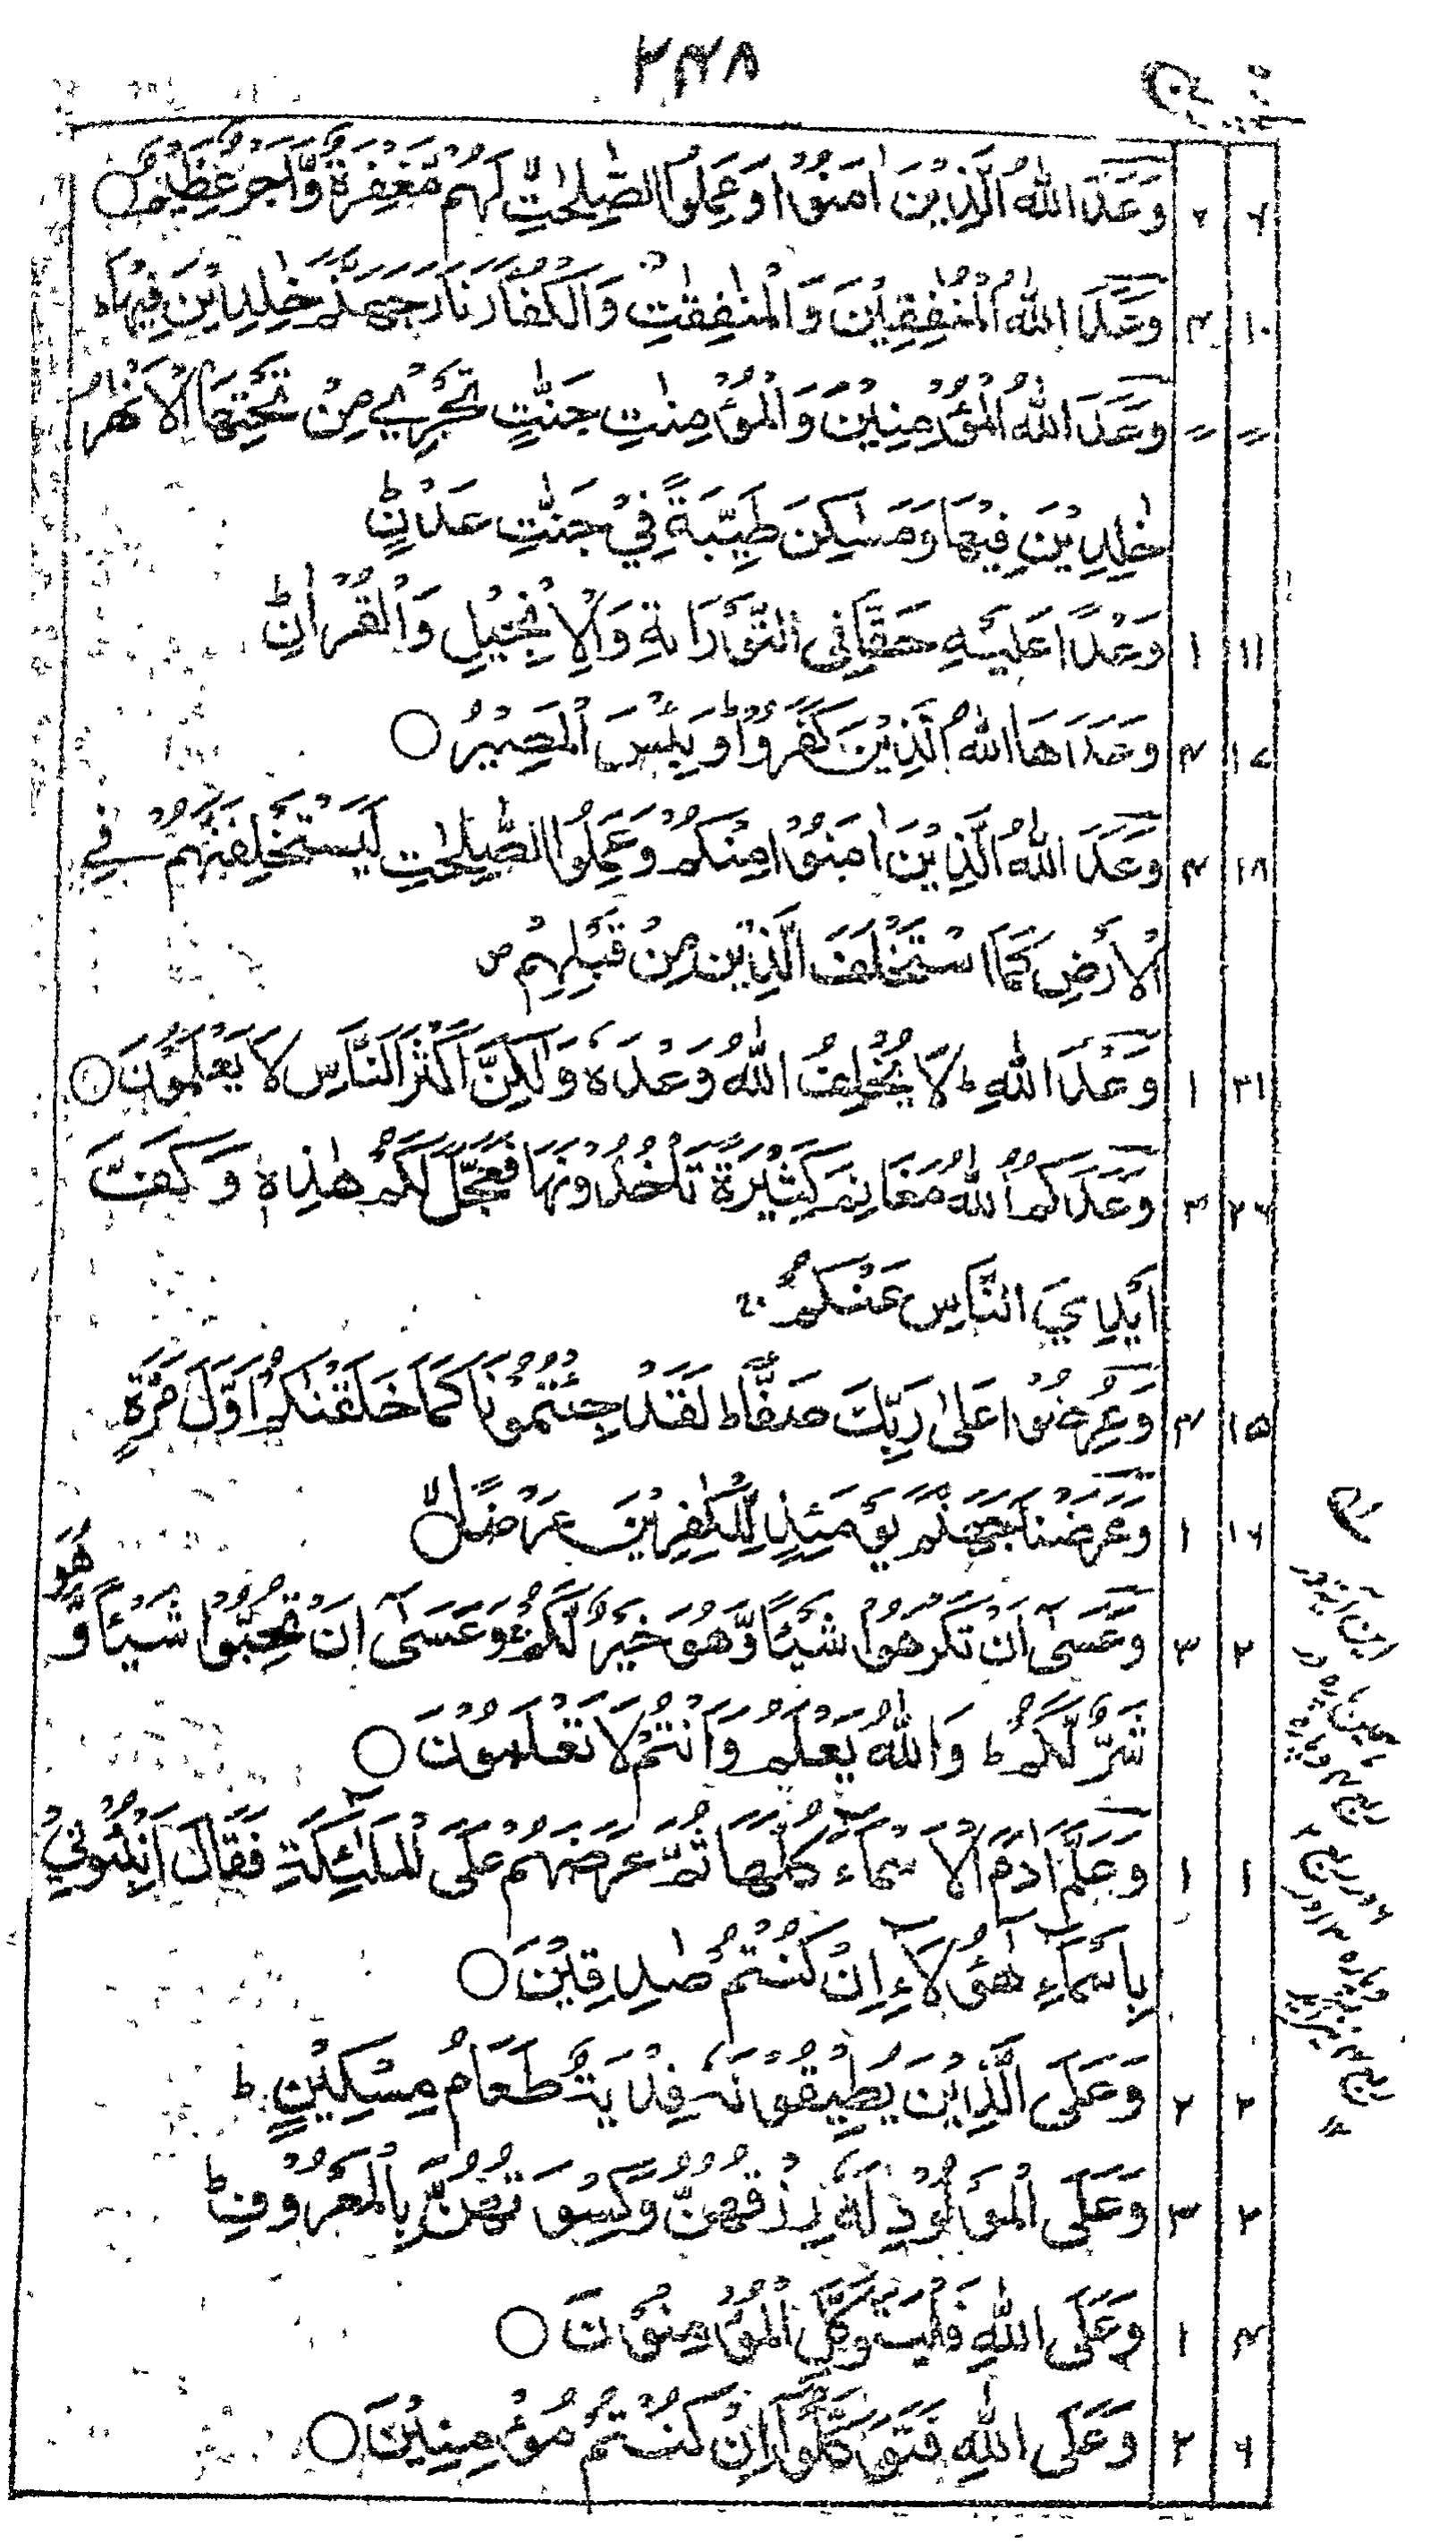 ۲۴۸
۶ ۲ وَعَدَ اللّٰهُ الَّذِيْنَ اٰمَنُوْا وَعَمِلُوا الصّٰلِحٰتِ ۙ لَهُمْ مَّغْفِرَةٌ وَّاَجْرٌ عَظِيْمٌ ○
۱۰ ۴ وَعَدَ اللّٰهُ الْمُنٰفِقِيْنَ وَالْمُنٰفِقٰتِ وَالْكُفَّارَ نَارَ جَهَنَّمَ خٰلِدِيْنَ فِيْهَا ؕ
〃 〃 وَعَدَ اللّٰهُ الْمُؤْمِنِيْنَ وَالْمُؤْمِنٰتِ جَنّٰتٍ تَجْرِيْ مِنْ تَحْتِهَا الْاَنْهٰرُ
خٰلِدِيْنَ فِيْهَا وَمَسٰكِنَ طَيِّبَةً فِيْ جَنّٰتِ عَدْنٍ ؕ
۱۱ ۱ وَعْدًا عَلَيْهِ حَقًّا فِى التَّوْرٰىةِ وَالْاِنْجِيْلِ وَالْقُرْاٰنِ ؕ
۱۷ ۴ وَعَدَهَا اللّٰهُ الَّذِيْنَ كَفَرُوْا ؕ وَبِئْسَ الْمَصِيْرُ ○
۱۸ ۴ وَعَدَ اللّٰهُ الَّذِيْنَ اٰمَنُوْا مِنْكُمْ وَعَمِلُوا الصّٰلِحٰتِ لَيَسْتَخْلِفَنَّهُمْ فِي
الْاَرْضِ كَمَا اسْتَخْلَفَ الَّذِيْنَ مِنْ قَبْلِهِمْ ص
۲۱ ۱ وَعْدَ اللّٰهِ ؕ لَا يُخْلِفُ اللّٰهُ وَعْدَهٗ وَلٰكِنَّ اَكْثَرَ النَّاسِ لَا يَعْلَمُوْنَ ○
۲۶ ۳ وَعَدَكُمُ اللّٰهُ مَغَانِمَ كَثِيْرَةً تَاْخُذُوْنَهَا فَعَجَّلَ لَكُمْ هٰذِهٖ وَكَفَّ
اَيْدِيَ النَّاسِ عَنْكُمْ ۚ
۱۵ ۴ وَعُرِضُوْا عَلٰى رَبِّكَ صَفًّا ؕ لَقَدْ جِئْتُمُوْنَا كَمَا خَلَقْنٰكُمْ اَوَّلَ مَرَّةٍ
۱۶ ۱ وَعَرَضْنَا جَهَنَّمَ يَوْمَئِذٍ لِّلْكٰفِرِيْنَ عَرْضًا ۙ ○
۲ ۳ وَعَسٰٓى اَنْ تَكْرَهُوْا شَيْئًا وَّهُوَ خَيْرٌ لَّكُمْ ۚ وَعَسٰٓى اَنْ تُحِبُّوْا شَيْئًا وَّ هُوَ
شَرٌّ لَّكُمْ ؕ وَاللّٰهُ يَعْلَمُ وَاَنْتُمْ لَا تَعْلَمُوْنَ ○
۱ ۱ وَعَلَّمَ اٰدَمَ الْاَسْمَآءَ كُلَّهَا ثُمَّ عَرَضَهُمْ عَلَى الْمَلٰٓئِكَةِ فَقَالَ اَنْۢبِئُوْنِيْ
بِاَسْمَآءِ هٰٓؤُلَآءِ اِنْ كُنْتُمْ صٰدِقِيْنَ ○
۲ ۲ وَعَلَى الَّذِيْنَ يُطِيْقُوْنَهٗ فِدْيَةٌ طَعَامُ مِسْكِيْنٍ ؕ
۲ ۳ وَعَلَى الْمَوْلُوْدِ لَهٗ رِزْقُهُنَّ وَكِسْوَتُهُنَّ بِالْمَعْرُوْفِ ؕ
۴ ۱ وَعَلَى اللّٰهِ فَلْيَتَوَكَّلِ الْمُؤْمِنُوْنَ ○
۶ ۲ وَعَلَى اللّٰهِ فَتَوَكَّلُوْا اِنْ كُنْتُمْ مُّؤْمِنِيْنَ ○